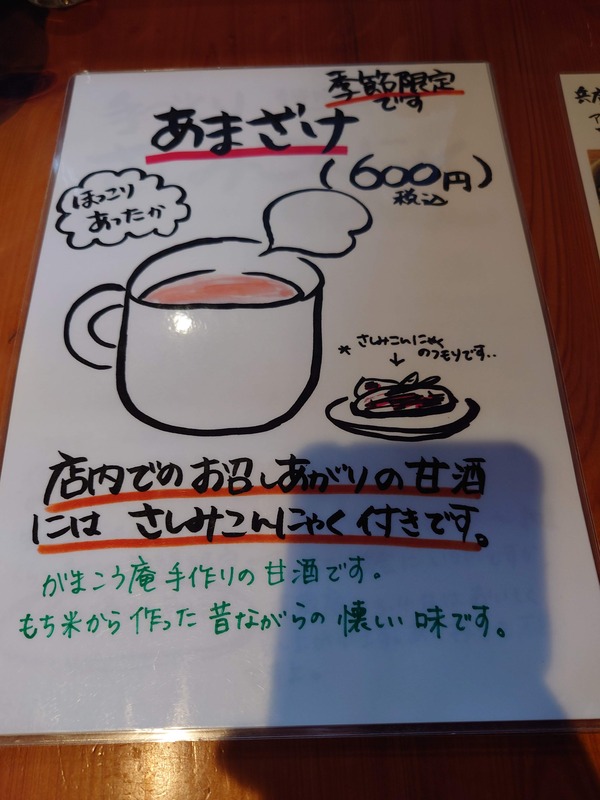 季節限定
です
あまざけ
(600円)
税込
ほっこり
あったか
*さしみこんにゃく
のつモリです..
店内でのお召しあがりの甘酒
には さしみこんにゃく付きです。
がまこう庵手作りの甘酒です。
もち米から作った昔ながらの懐しい味です。